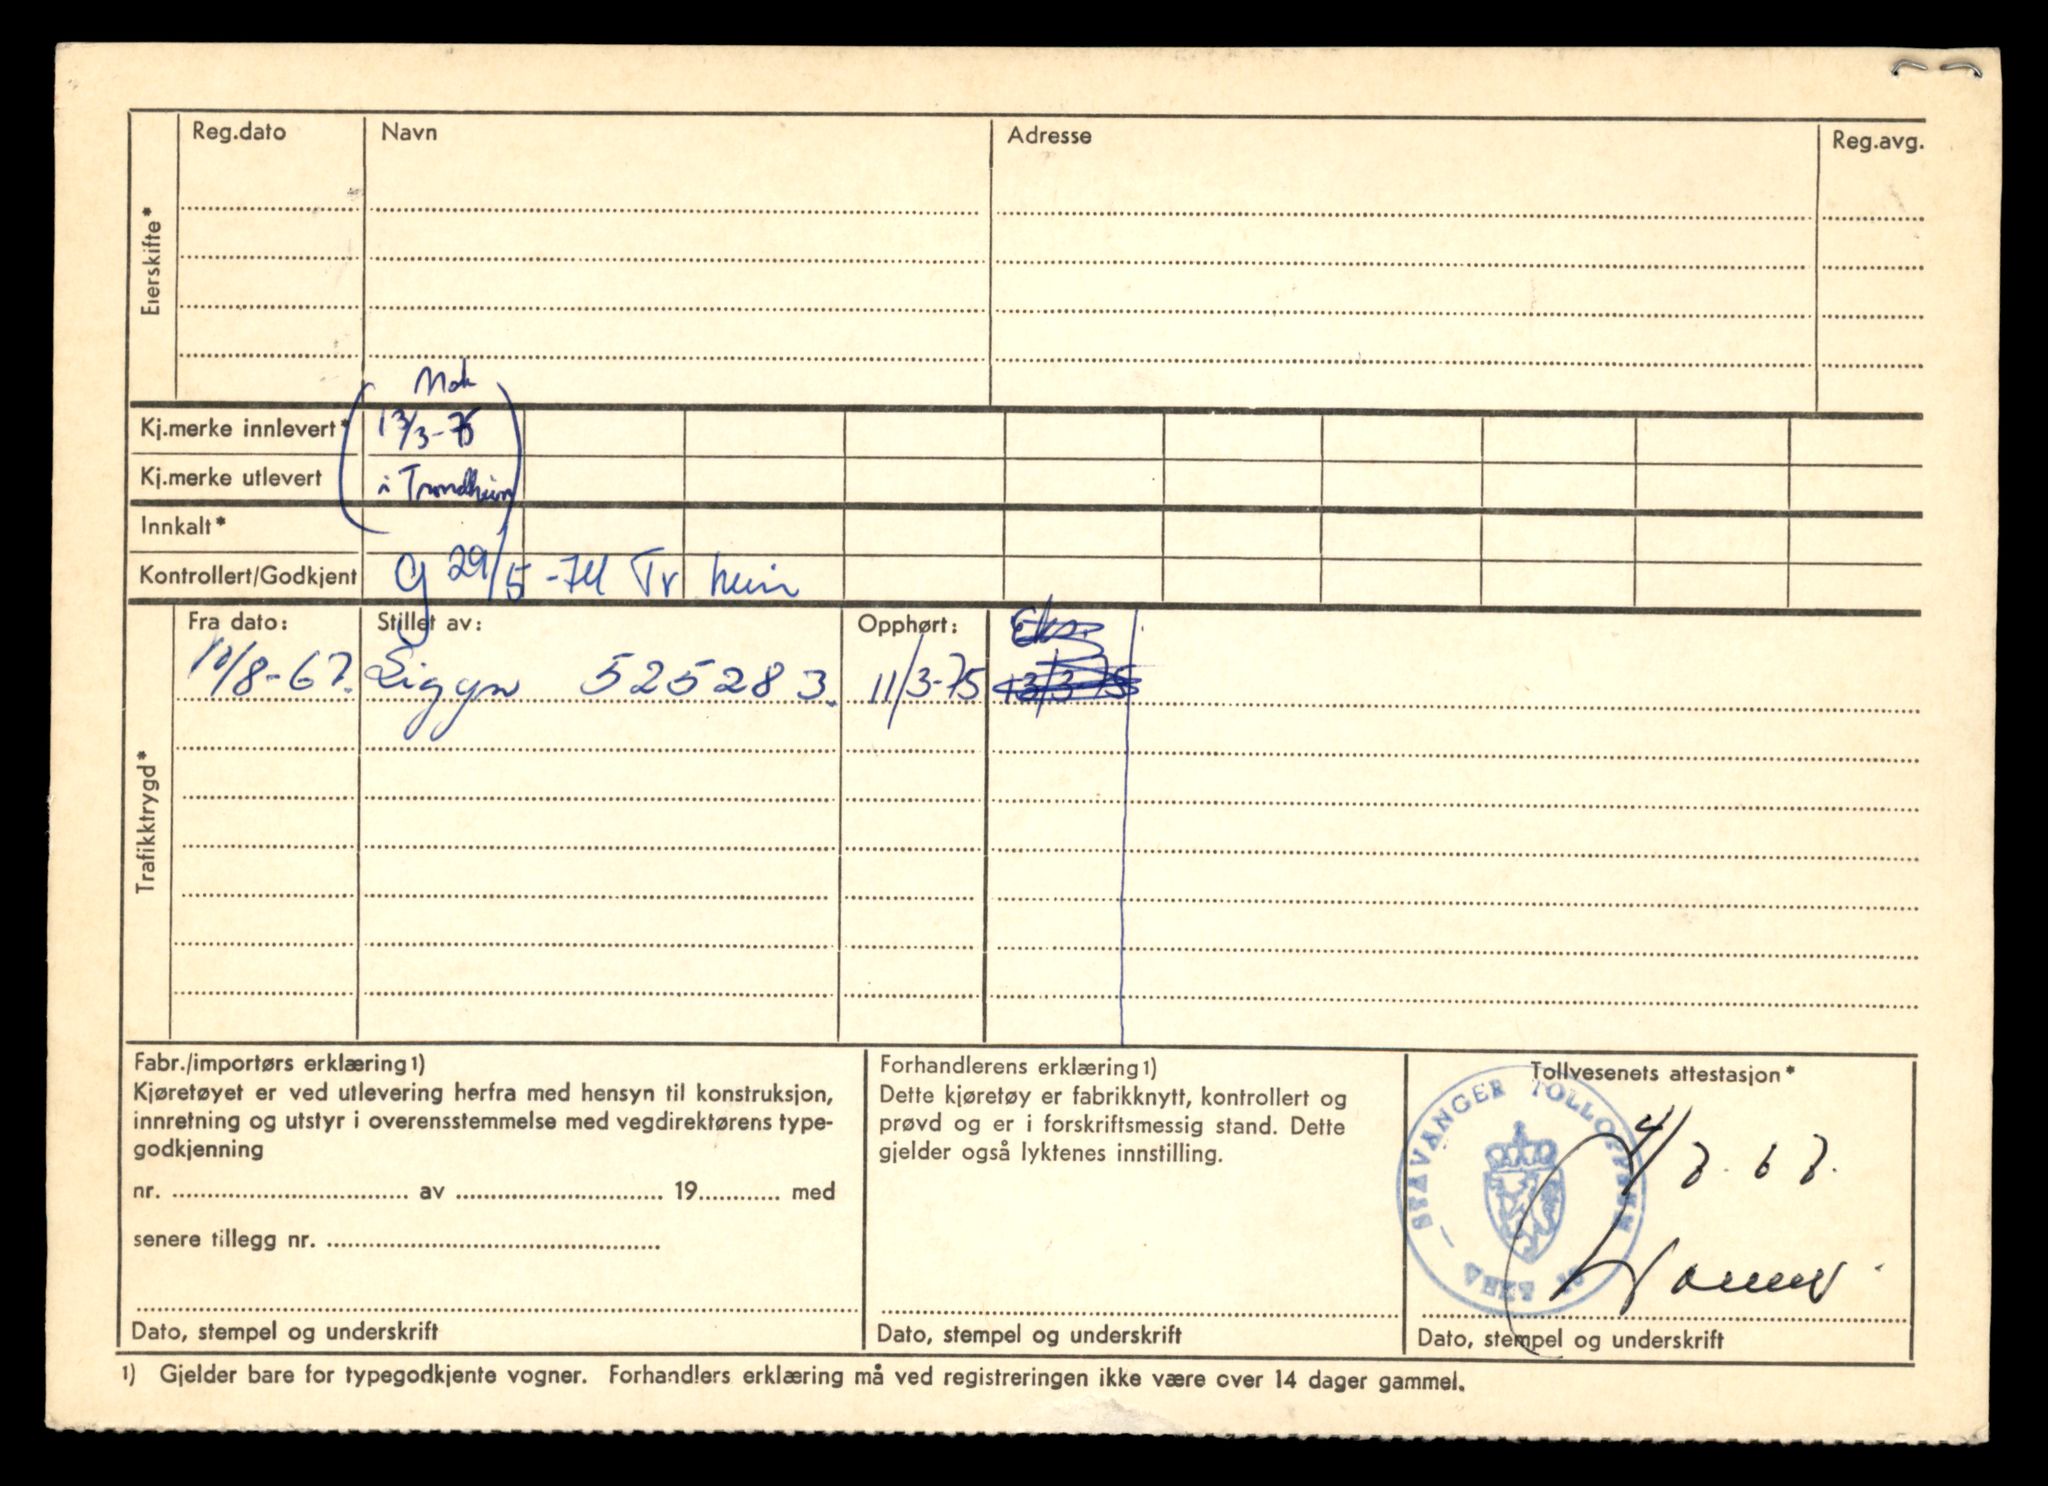 Eierskifte*
Reg.dato Navn Adresse Reg.avg.
Mok
Kj.merke innlevert* 13/3-75
Kj.merke utlevert i Trondheim
Innkalt*
Kontrollert/Godkjent G 29/5-74 Tr heim
Trafikktrygd*
Fra dato: Stillet av: Opphørt: Eks.
10/8-67. Sigyn 525283. 11/3-75 13/3-75
Fabr./importørs erklæring1)
Kjøretøyet er ved utlevering herfra med hensyn til konstruksjon,
innretning og utstyr i overensstemmelse med vegdirektørens type-
godkjenning
nr. av 19 med
senere tillegg nr.
Dato, stempel og underskrift
Forhandlerens erklæring1)
Dette kjøretøy er fabrikknytt, kontrollert og
prøvd og er i forskriftsmessig stand. Dette
gjelder også lyktenes innstilling.
Dato, stempel og underskrift
Tollvesenets attestasjon*
STAVANGER TOLLOPPSYN
4/8.67.
Dato, stempel og underskrift
1) Gjelder bare for typegodkjente vogner. Forhandlers erklæring må ved registreringen ikke være over 14 dager gammel.